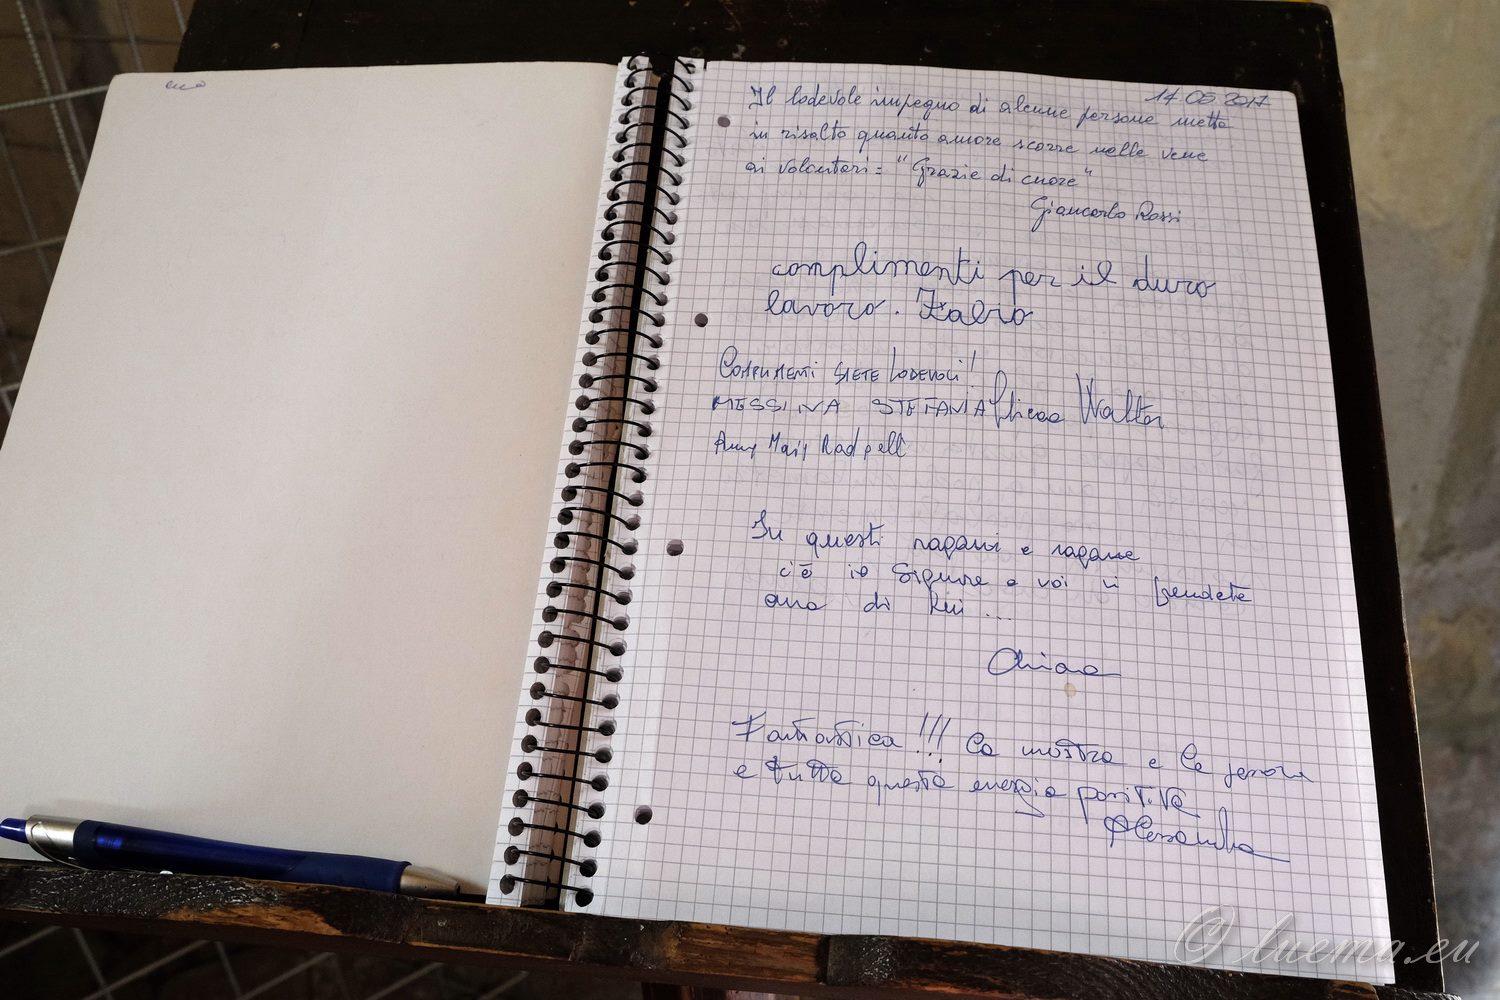 17.05.2017
Il lodevole impegno di alcune persone mette
in risalto quanto amore scorre nelle vene
ai volontari: "Grazie di cuore"
Giancarlo Rossi
complimenti per il duro
lavoro. Fabio
COMPLIMENTI SIETE LODEVOLI!
MESSINA STEFANIA Walter
In questi ragazzi e ragazze
c'è il Signore e voi vi prendete
cura di Lui...
Chiara
Fantastica!!! la mostra e le persone
e tutta questa energia positiva
Alessandra
© luema.eu